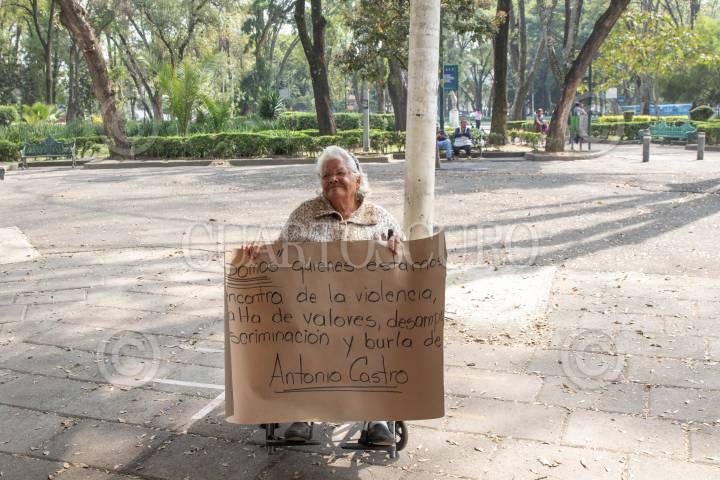 Somos quienes estamos
encontra de la violencia,
falta de valores, desampa
scriminación y burla de
Antonio Castro
CUARTOSCURO